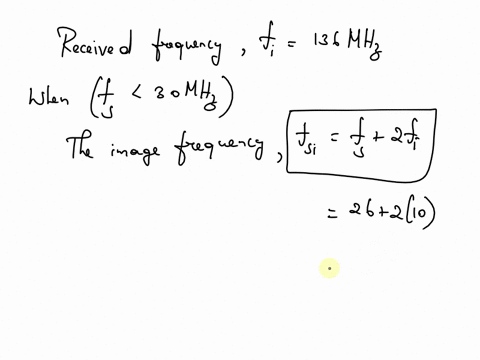 Received frequency, f_i = 136 MHz
When (f_s < 30 MHz)
The image frequency, f_si = f_s + 2f_i
= 26+2(10)